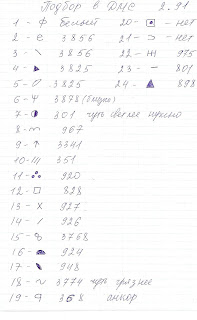 Подбор в DMC 2.91
1 - ϕ белый 20 - ⊡ - нет
2 - 3856 21 - нет
3 - \ 3856 22 - 975
4 - 3825 23 - — 801
5 - 0 3825 24 - 898
6 - Ψ 3878 (бицю)
7 - ◑ 301 чуть светлее нужно
8 - 967
9 - ↑ 3341
10 - /// 351
11 - 920
12 - □ 828
13 - x 927
14 - / 926
15 - 3768
16 - 924
17 - 948
18 - ~ 3774 чуть грязнее
19 - 368 анкор